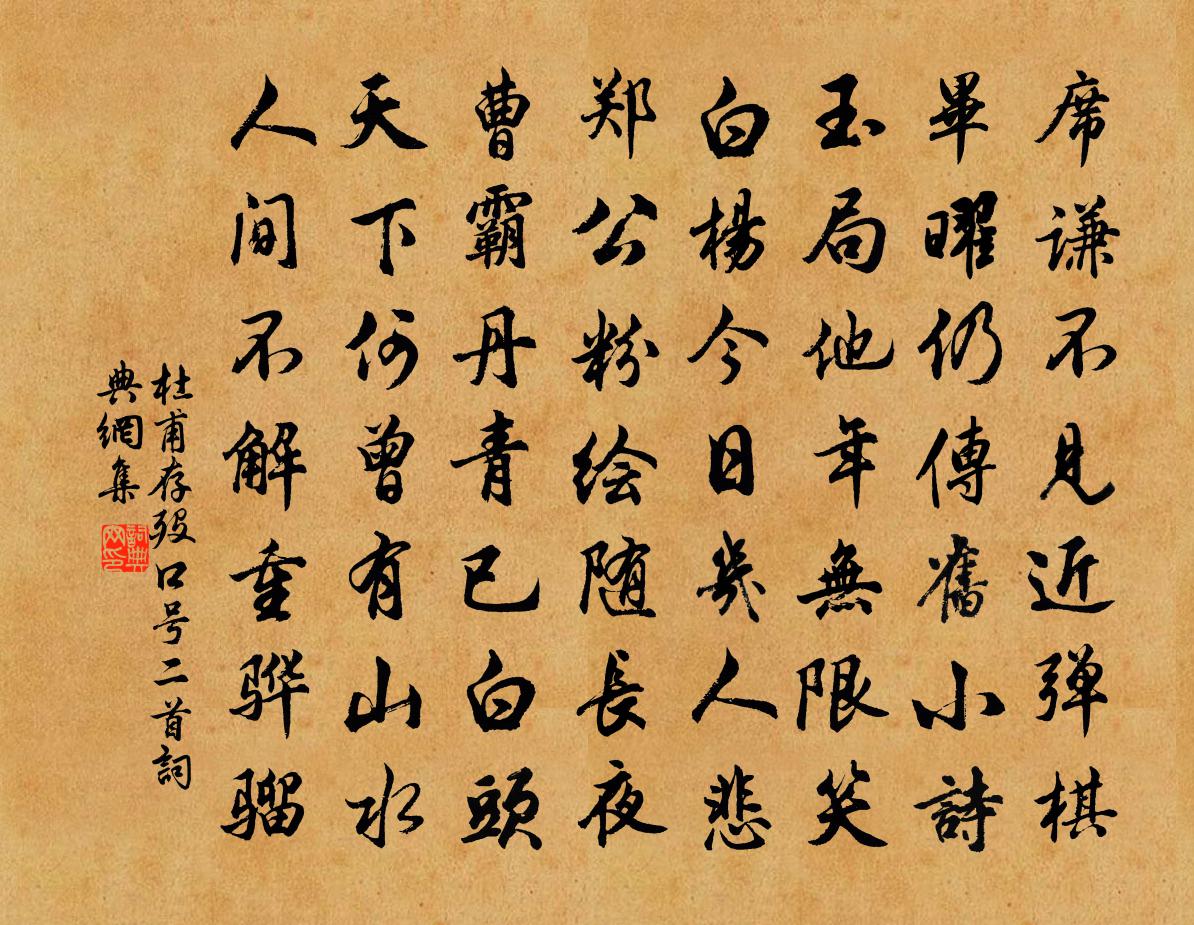 席谦不見近弹棋
畢曜仍傳舊小詩
玉局他年無限笑
白楊今日幾人悲
郑公粉绘随長夜
曹霸丹青已白頭
天下何曾有山水
人间不解重骅骝
杜甫存殁口号二首詞
典網集
詞典网印